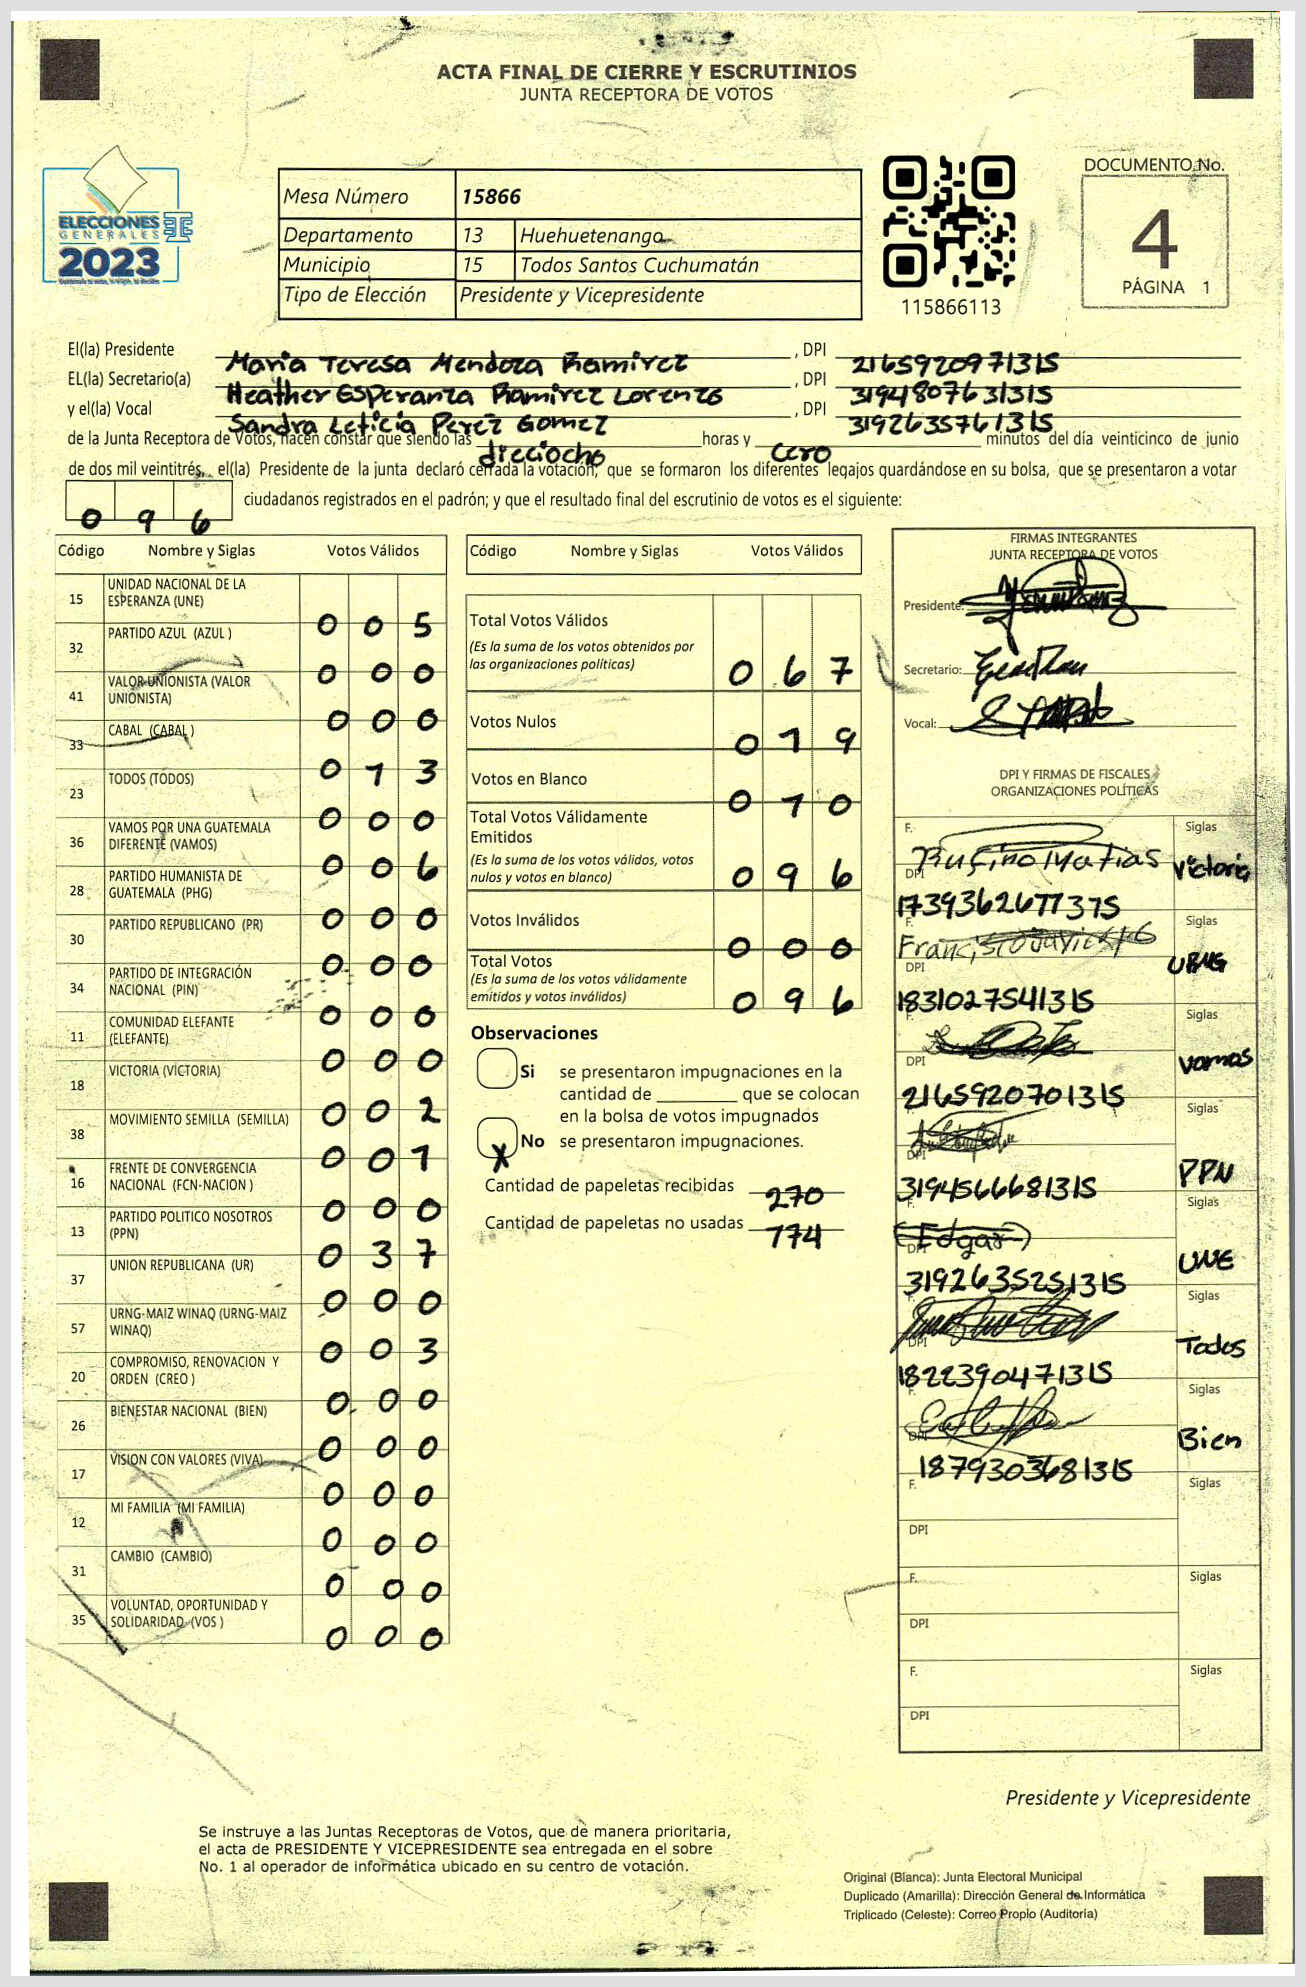 ACTA FINAL DE CIERRE Y ESCRUTINIOS
JUNTA RECEPTORA DE VOTOS
ELECCIONES
GENERALES
2023
Mesa Número 15866
Departamento 13 Huehuetenango
Municipio 15 Todos Santos Cuchumatán
Tipo de Elección Presidente y Vicepresidente
115866113
DOCUMENTO No.
4
PÁGINA 1
El(la) Presidente Maria Teresa Mendoza Ramirez , DPI 2165920971315
EL(la) Secretario(a) Heather Esperanza Ramirez Lorenzo , DPI 3194807631315
y el(la) Vocal Sandra Leticia Perez Gomez , DPI 3192635761315
de la Junta Receptora de Votos, hacen constar que siendo las dieciocho horas y cero minutos del día veinticinco de junio
de dos mil veintitrés, el(la) Presidente de la junta declaró cerrada la votación, que se formaron los diferentes legajos quardándose en su bolsa, que se presentaron a votar
096 ciudadanos registrados en el padrón; y que el resultado final del escrutinio de votos es el siguiente:
Código Nombre y Siglas Votos Válidos
15 UNIDAD NACIONAL DE LA ESPERANZA (UNE) 005
32 PARTIDO AZUL (AZUL ) 000
41 VALOR UNIONISTA (VALOR UNIONISTA) 000
33 CABAL (CABAL ) 013
23 TODOS (TODOS) 000
36 VAMOS POR UNA GUATEMALA DIFERENTE (VAMOS) 006
28 PARTIDO HUMANISTA DE GUATEMALA (PHG) 000
30 PARTIDO REPUBLICANO (PR) 000
34 PARTIDO DE INTEGRACIÓN NACIONAL (PIN) 000
11 COMUNIDAD ELEFANTE (ELEFANTE) 000
18 VICTORIA (VICTORIA) 002
38 MOVIMIENTO SEMILLA (SEMILLA) 001
16 FRENTE DE CONVERGENCIA NACIONAL (FCN-NACION ) 000
13 PARTIDO POLITICO NOSOTROS (PPN) 037
37 UNION REPUBLICANA (UR) 000
57 URNG-MAIZ WINAQ (URNG-MAIZ WINAQ) 003
20 COMPROMISO, RENOVACION Y ORDEN (CREO ) 000
26 BIENESTAR NACIONAL (BIEN) 000
17 VISION CON VALORES (VIVA) 000
12 MI FAMILIA (MI FAMILIA) 000
31 CAMBIO (CAMBIO) 000
35 VOLUNTAD, OPORTUNIDAD Y SOLIDARIDAD (VOS ) 000
Código Nombre y Siglas Votos Válidos
Total Votos Válidos 067
(Es la suma de los votos obtenidos por
las organizaciones políticas)
Votos Nulos 019
Votos en Blanco 010
Total Votos Válidamente
Emitidos 096
(Es la suma de los votos válidos, votos
nulos y votos en blanco)
Votos Inválidos 000
Total Votos 096
(Es la suma de los votos válidamente
emitidos y votos inválidos)
Observaciones
Si se presentaron impugnaciones en la
cantidad de ________ que se colocan
en la bolsa de votos impugnados
X No se presentaron impugnaciones.
Cantidad de papeletas recibidas 270
Cantidad de papeletas no usadas 174
FIRMAS INTEGRANTES
JUNTA RECEPTORA DE VOTOS
Presidente:
Secretario:
Vocal:
DPI Y FIRMAS DE FISCALES
ORGANIZACIONES POLÍTICAS
F. Rufino Matias Siglas Victoria
DPI 1739362671315
F. Francisco Siglas URNG
DPI 1831027541315
F. Siglas Vamos
DPI 2165920701315
Siglas PPN
DPI 3194566681315
(Edgar) Siglas UNE
DPI 3192635251315
F. Siglas Todos
DPI 1822390471315
F. Siglas Bien
DPI 1879303681315
F. Siglas
DPI
F. Siglas
DPI
F. Siglas
DPI
Presidente y Vicepresidente
Se instruye a las Juntas Receptoras de Votos, que de manera prioritaria,
el acta de PRESIDENTE Y VICEPRESIDENTE sea entregada en el sobre
No. 1 al operador de informática ubicado en su centro de votación.
Original (Blanca): Junta Electoral Municipal
Duplicado (Amarilla): Dirección General de Informática
Triplicado (Celeste): Correo Propio (Auditoría)